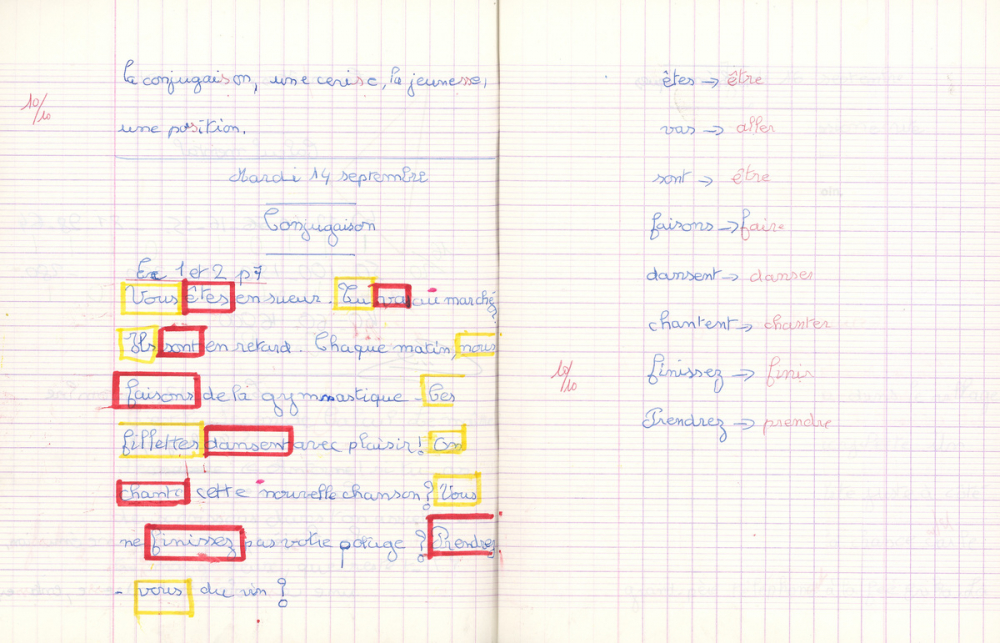 la conjugaison, une cerise, la jeunesse,
10/10
une position.
Mardi 14 septembre
Conjugaison
Ex 1 et 2 p7
Vous êtes en sueur. Tu vas au marché.
Ils sont en retard. Chaque matin, nous
faisons de la gymnastique. Ces
fillettes dansent avec plaisir! On
chante cette nouvelle chanson? Vous
ne finissez pas votre potage? Prendrez
- vous du vin?
êtes → être
vas → aller
sont → être
faisons → faire
dansent → danser
chantent → chanter
10/10
finissez → finir
Prendrez → prendre